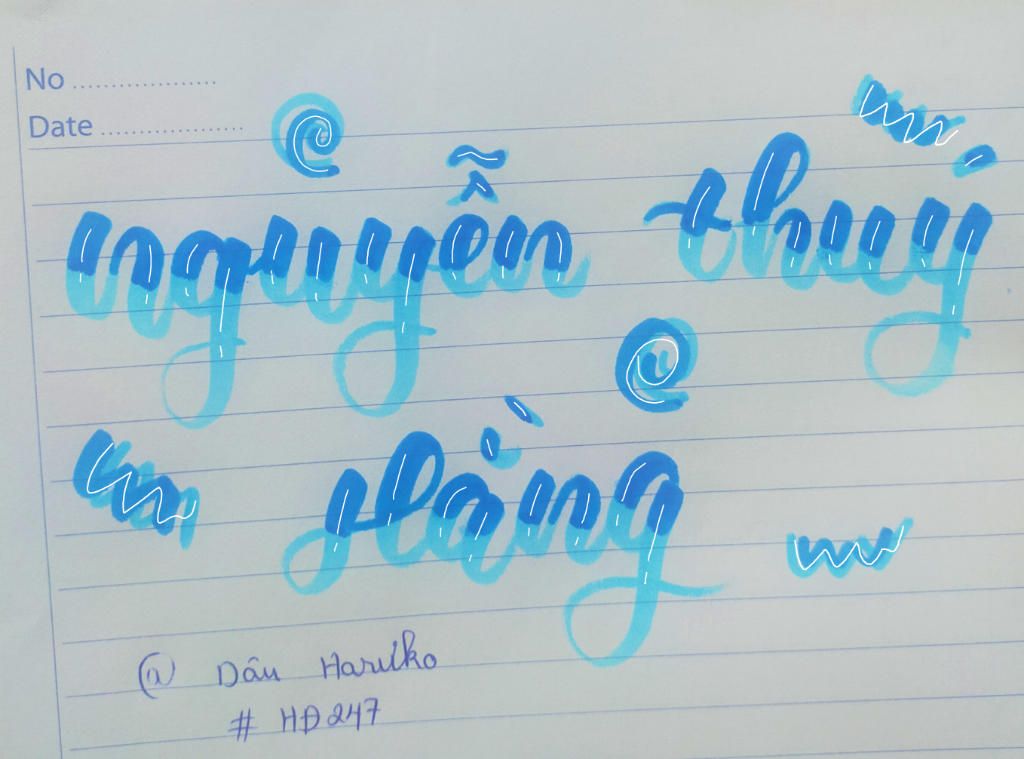 No ...................
Date ...................
nguyễn thuý
Hằng
@ Dâu Haruko
# HĐ247